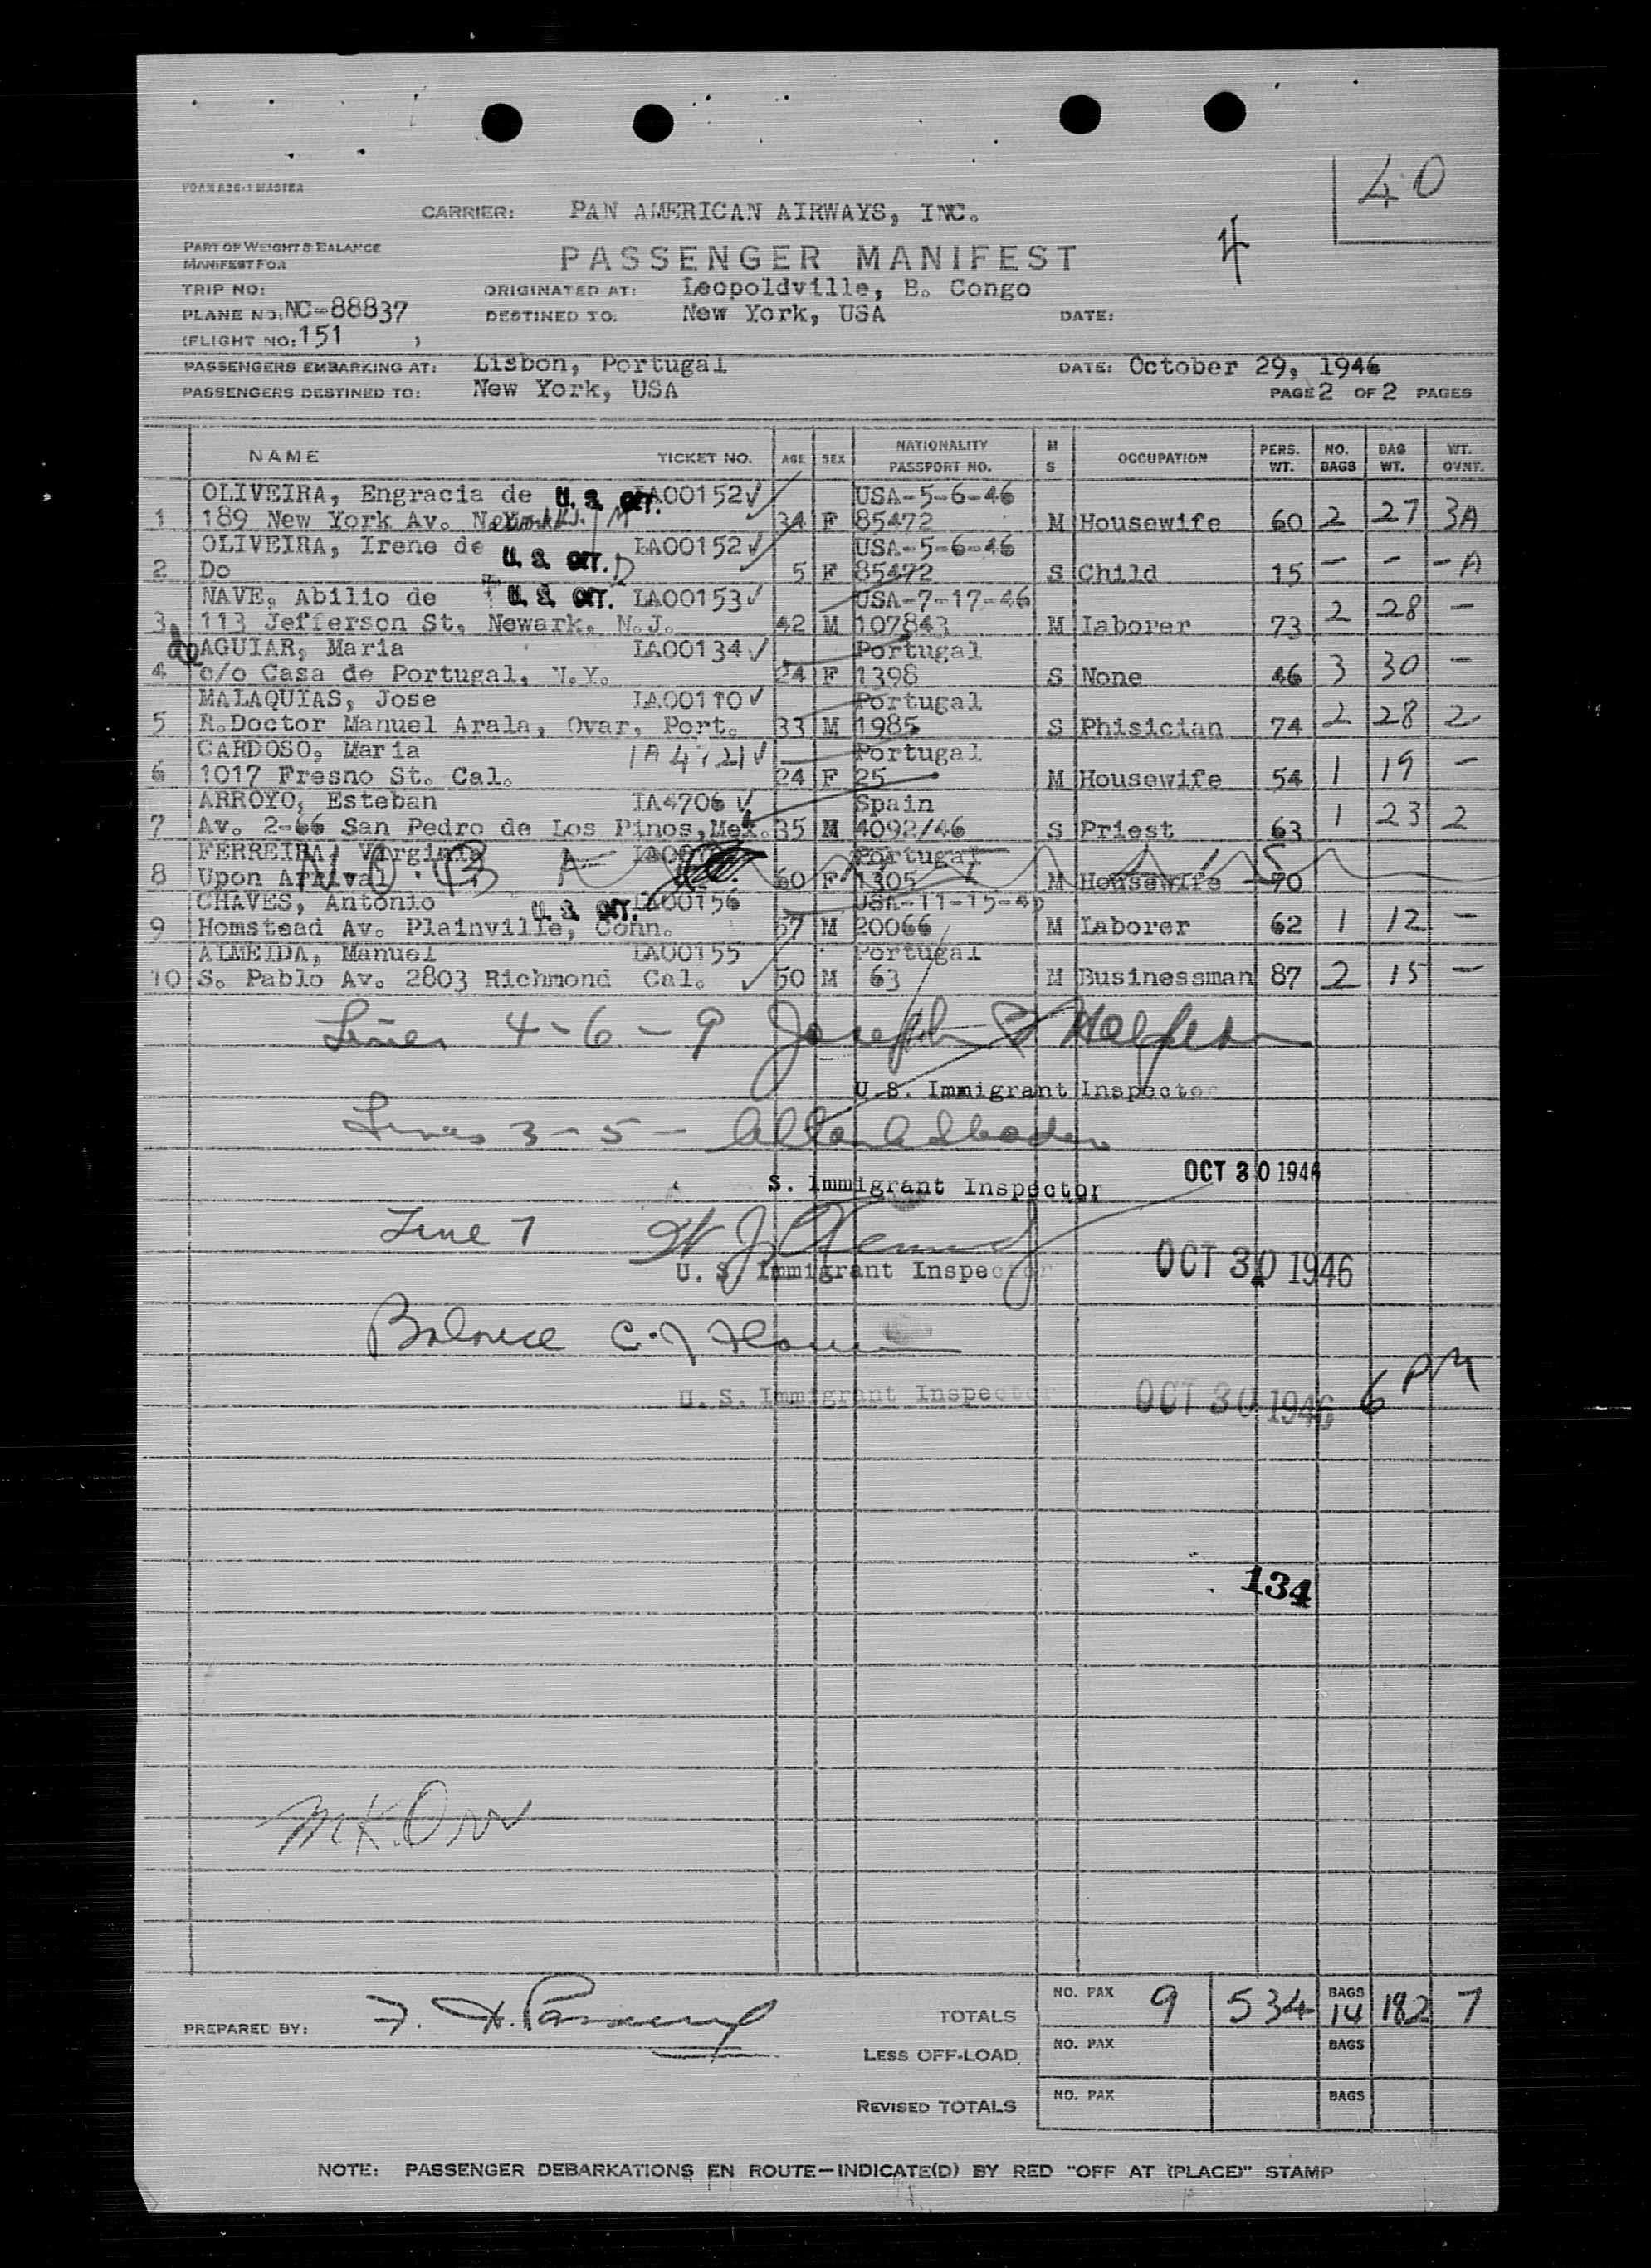 40
FORM 636-1 MASTER
CARRIER: PAN AMERICAN AIRWAYS, INC.
4
PART OF WEIGHT & BALANCE
MANIFEST FOR
PASSENGER MANIFEST
TRIP NO: ORIGINATED AT: Leopoldville, B. Congo
PLANE NO: NC-88837 DESTINED TO: New York, USA DATE:
(FLIGHT NO: 151 )
PASSENGERS EMBARKING AT: Lisbon, Portugal DATE: October 29, 1946
PASSENGERS DESTINED TO: New York, USA PAGE 2 OF 2 PAGES
NAME TICKET NO. AGE SEX NATIONALITY PASSPORT NO. M S OCCUPATION PERS. WT. NO. BAGS BAG WT. WT. OVNT.
OLIVEIRA, Engracia de U. S. CIT. IA00152 USA-5-6-46
1 189 New York Av. Newark N.J. M 34 F 85472 M Housewife 60 2 27 3A
OLIVEIRA, Irene de U. S. CIT. D IA00152 USA-5-6-46
2 Do 5 F 85472 S Child 15 - - - A
NAVE, Abilio de U. S. CIT. IA00153 USA-7-17-46
3 113 Jefferson St. Newark, N.J. 42 M 107843 M Laborer 73 2 28 -
de AGUIAR, Maria IA00134 Portugal
4 c/o Casa de Portugal, N.Y. 24 F 1398 S None 46 3 30 -
MALAQUIAS, Jose IA00110 Portugal
5 R.Doctor Manuel Arala, Ovar, Port. 33 M 1985 S Phisician 74 2 28 2
CARDOSO, Maria IA 4721 Portugal
6 1017 Fresno St. Cal. 24 F 25 M Housewife 54 1 19 -
ARROYO, Esteban IA4706 Spain
7 Av. 2-66 San Pedro de Los Pinos, Mex. 35 M 4092/46 S Priest 63 1 23 2
FERREIRA, Virginia Portugal
8 Upon Arrival N.O.B 60 F 1305 M Housewife 70
CHAVES, Antonio U. S. CIT. IA00156 USA-11-15-45
9 Homstead Av. Plainville, Conn. 57 M 20066 M Laborer 62 1 12 -
ALMEIDA, Manuel IA00155 Portugal
10 S. Pablo Av. 2803 Richmond Cal. 50 M 63 M Businessman 87 2 15 -
Lines 4-6-9 Joseph Halpern
U.S. Immigrant Inspector
Lines 3-5-
S. Immigrant Inspector OCT 30 1946
Line 7
U. S. Immigrant Inspector OCT 30 1946
Balance C. J.
U. S. Immigrant Inspector OCT 30 1946 6 PM
134
MK.Orr
PREPARED BY: TOTALS NO. PAX 9 534 BAGS 14 182 7
LESS OFF-LOAD NO. PAX BAGS
REVISED TOTALS NO. PAX BAGS
NOTE: PASSENGER DEBARKATIONS EN ROUTE—INDICATE(D) BY RED "OFF AT (PLACE)" STAMP